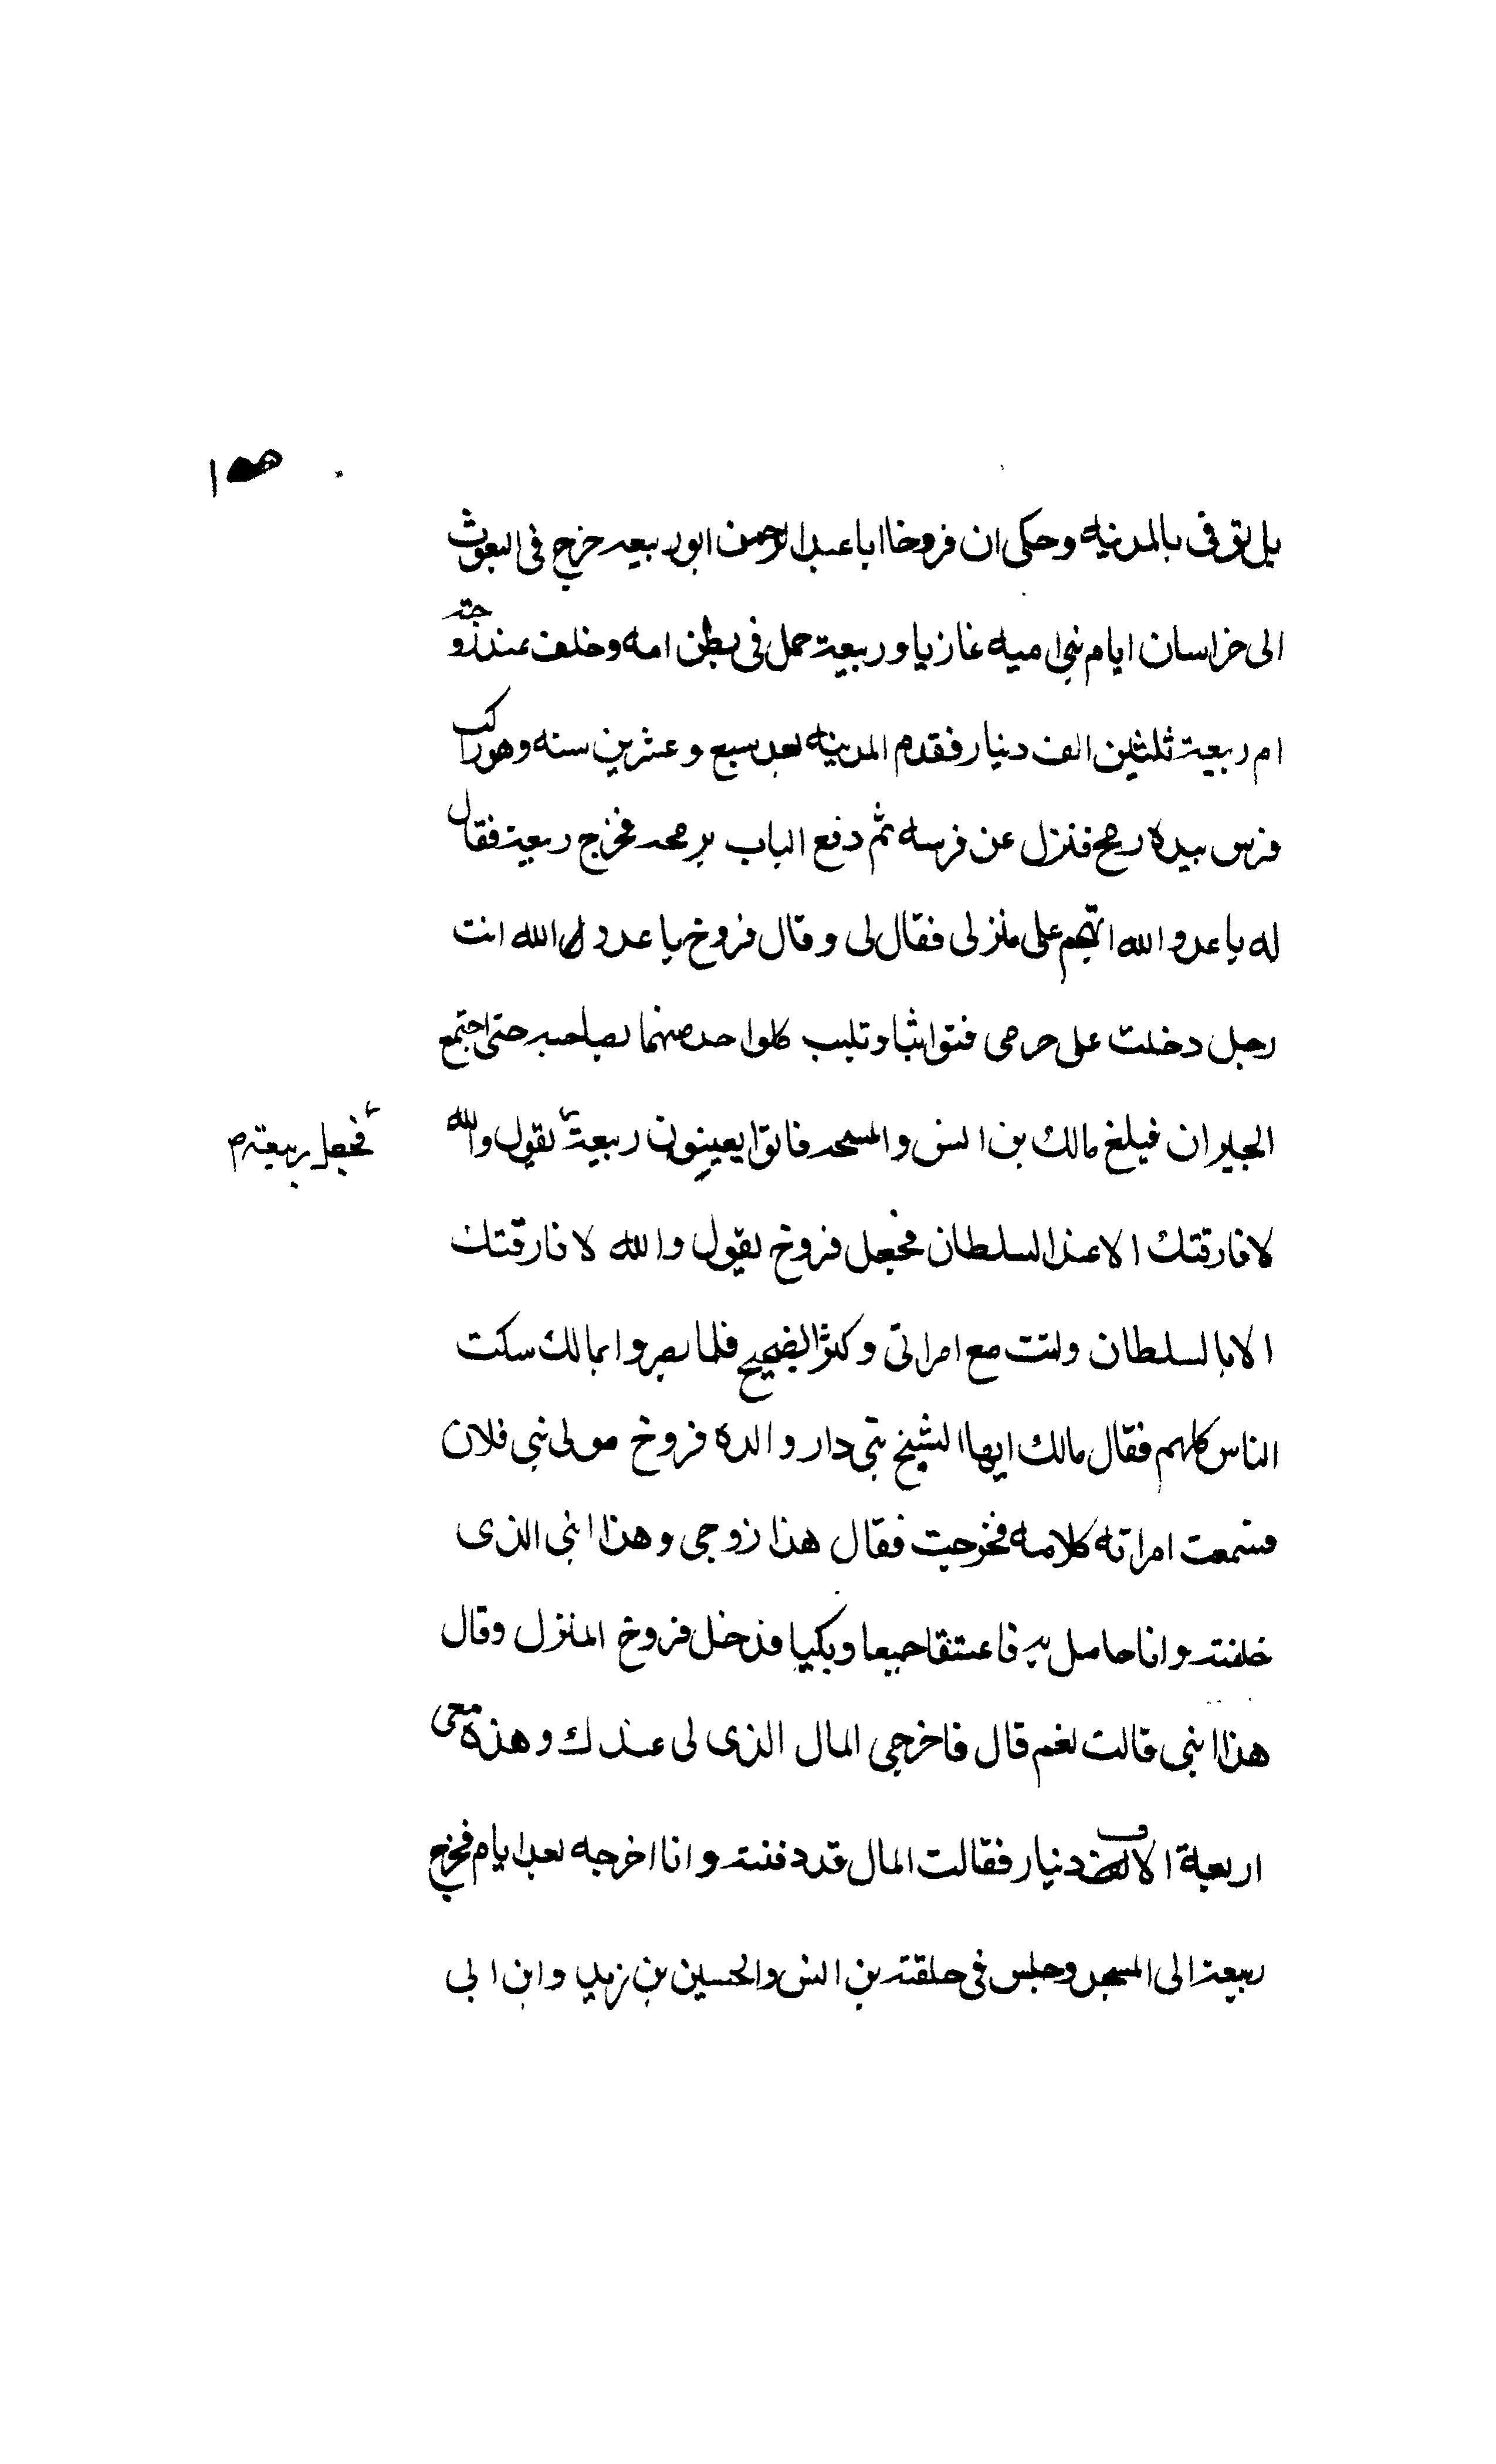 بل توفى بالمدنيه وحكى ان فروخا ابا عبد الرحمن ابو ربيعه خرج فى البعوث
الى خراسان ايام بنى اميه غازيا وربيعة حمل فى بطن امه وخلف عند زوجته
ام ربيعة ثلثين الف دنيار فقدم المدينه بعد سبع وعشرين سنه وهو راكب
فرس بيده رمح فنزل عن فرسه ثم دفع الباب برمحه فخرج ربيعة فقال
له يا عدو الله اتهجم على منزلى فقال لى وقال فروخ يا عدو الله انت
رجل دخلت على حرمى فتواثبا وتلبب كلواحد منهما بصاحبه حتى اجتمع
الجيران فبلغ مالك بن انس والمسجد فاتوا يعينون ربيعة يقول والله
فجعل ربيعة م
لا فارقتك الا عند السلطان فجعل فروخ يقول والله لا فارقتك
الا بالسلطان وانت مع امراتى وكثر الضجيج فلما بصروا بمالك سكت
الناس كلهم فقال مالك ايها الشيخ دار والده فروخ مولى بنى فلان
فسمعت امراته كلامه فخرجت فقال هذا زوجى وهذا ابنى الذى
خلفته وانا حامل به فاعتنقا جميعا وبكيا فدخل فروخ المنزل وقال
هذا ابنى قالت نعم قال فاخرجى المال الذى لى عندك وهذه معى
اربعة الاف دنيار فقالت المال قد دفنته وانا اخرجه بعد ايام فخرج
ربيعة الى المسجد وجلس فى حلقته بن انس والحسين بن زيد وابن ابى